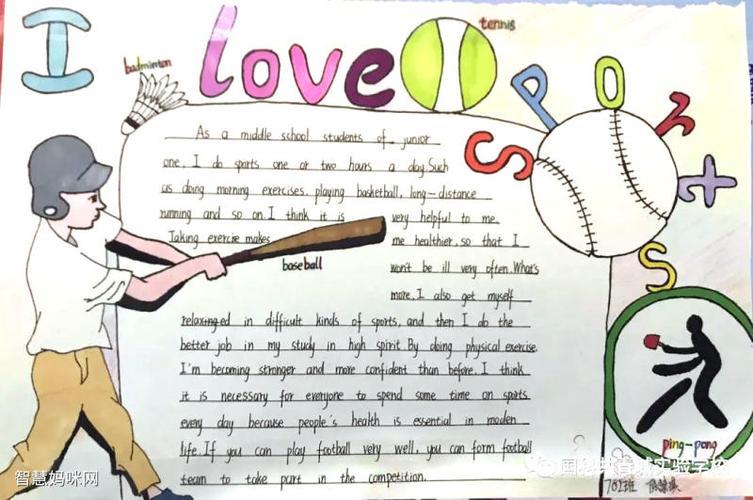 I love Sports
tennis
badminton
As a middle school students of junior
one, I do sports one or two hours a day. Such
as doing morning exercises, playing basketball, long-distance
running and so on. I think it is very helpful to me.
Taking exercise makes me healthier, so that I
baseball
won't be ill very often. What's
more, I also get myself
relaxinged in difficult kinds of sports, and then I do the
better job in my study in high spirit. By doing physical exercise
I'm becoming stronger and more confident than before. I think
it is necessary for everyone to spend some time on sports
every day because people's health is essential in moden
life. If you can play football very well, you can form football
team to take part in the competition.
ping-pong
智慧妈咪网
702班